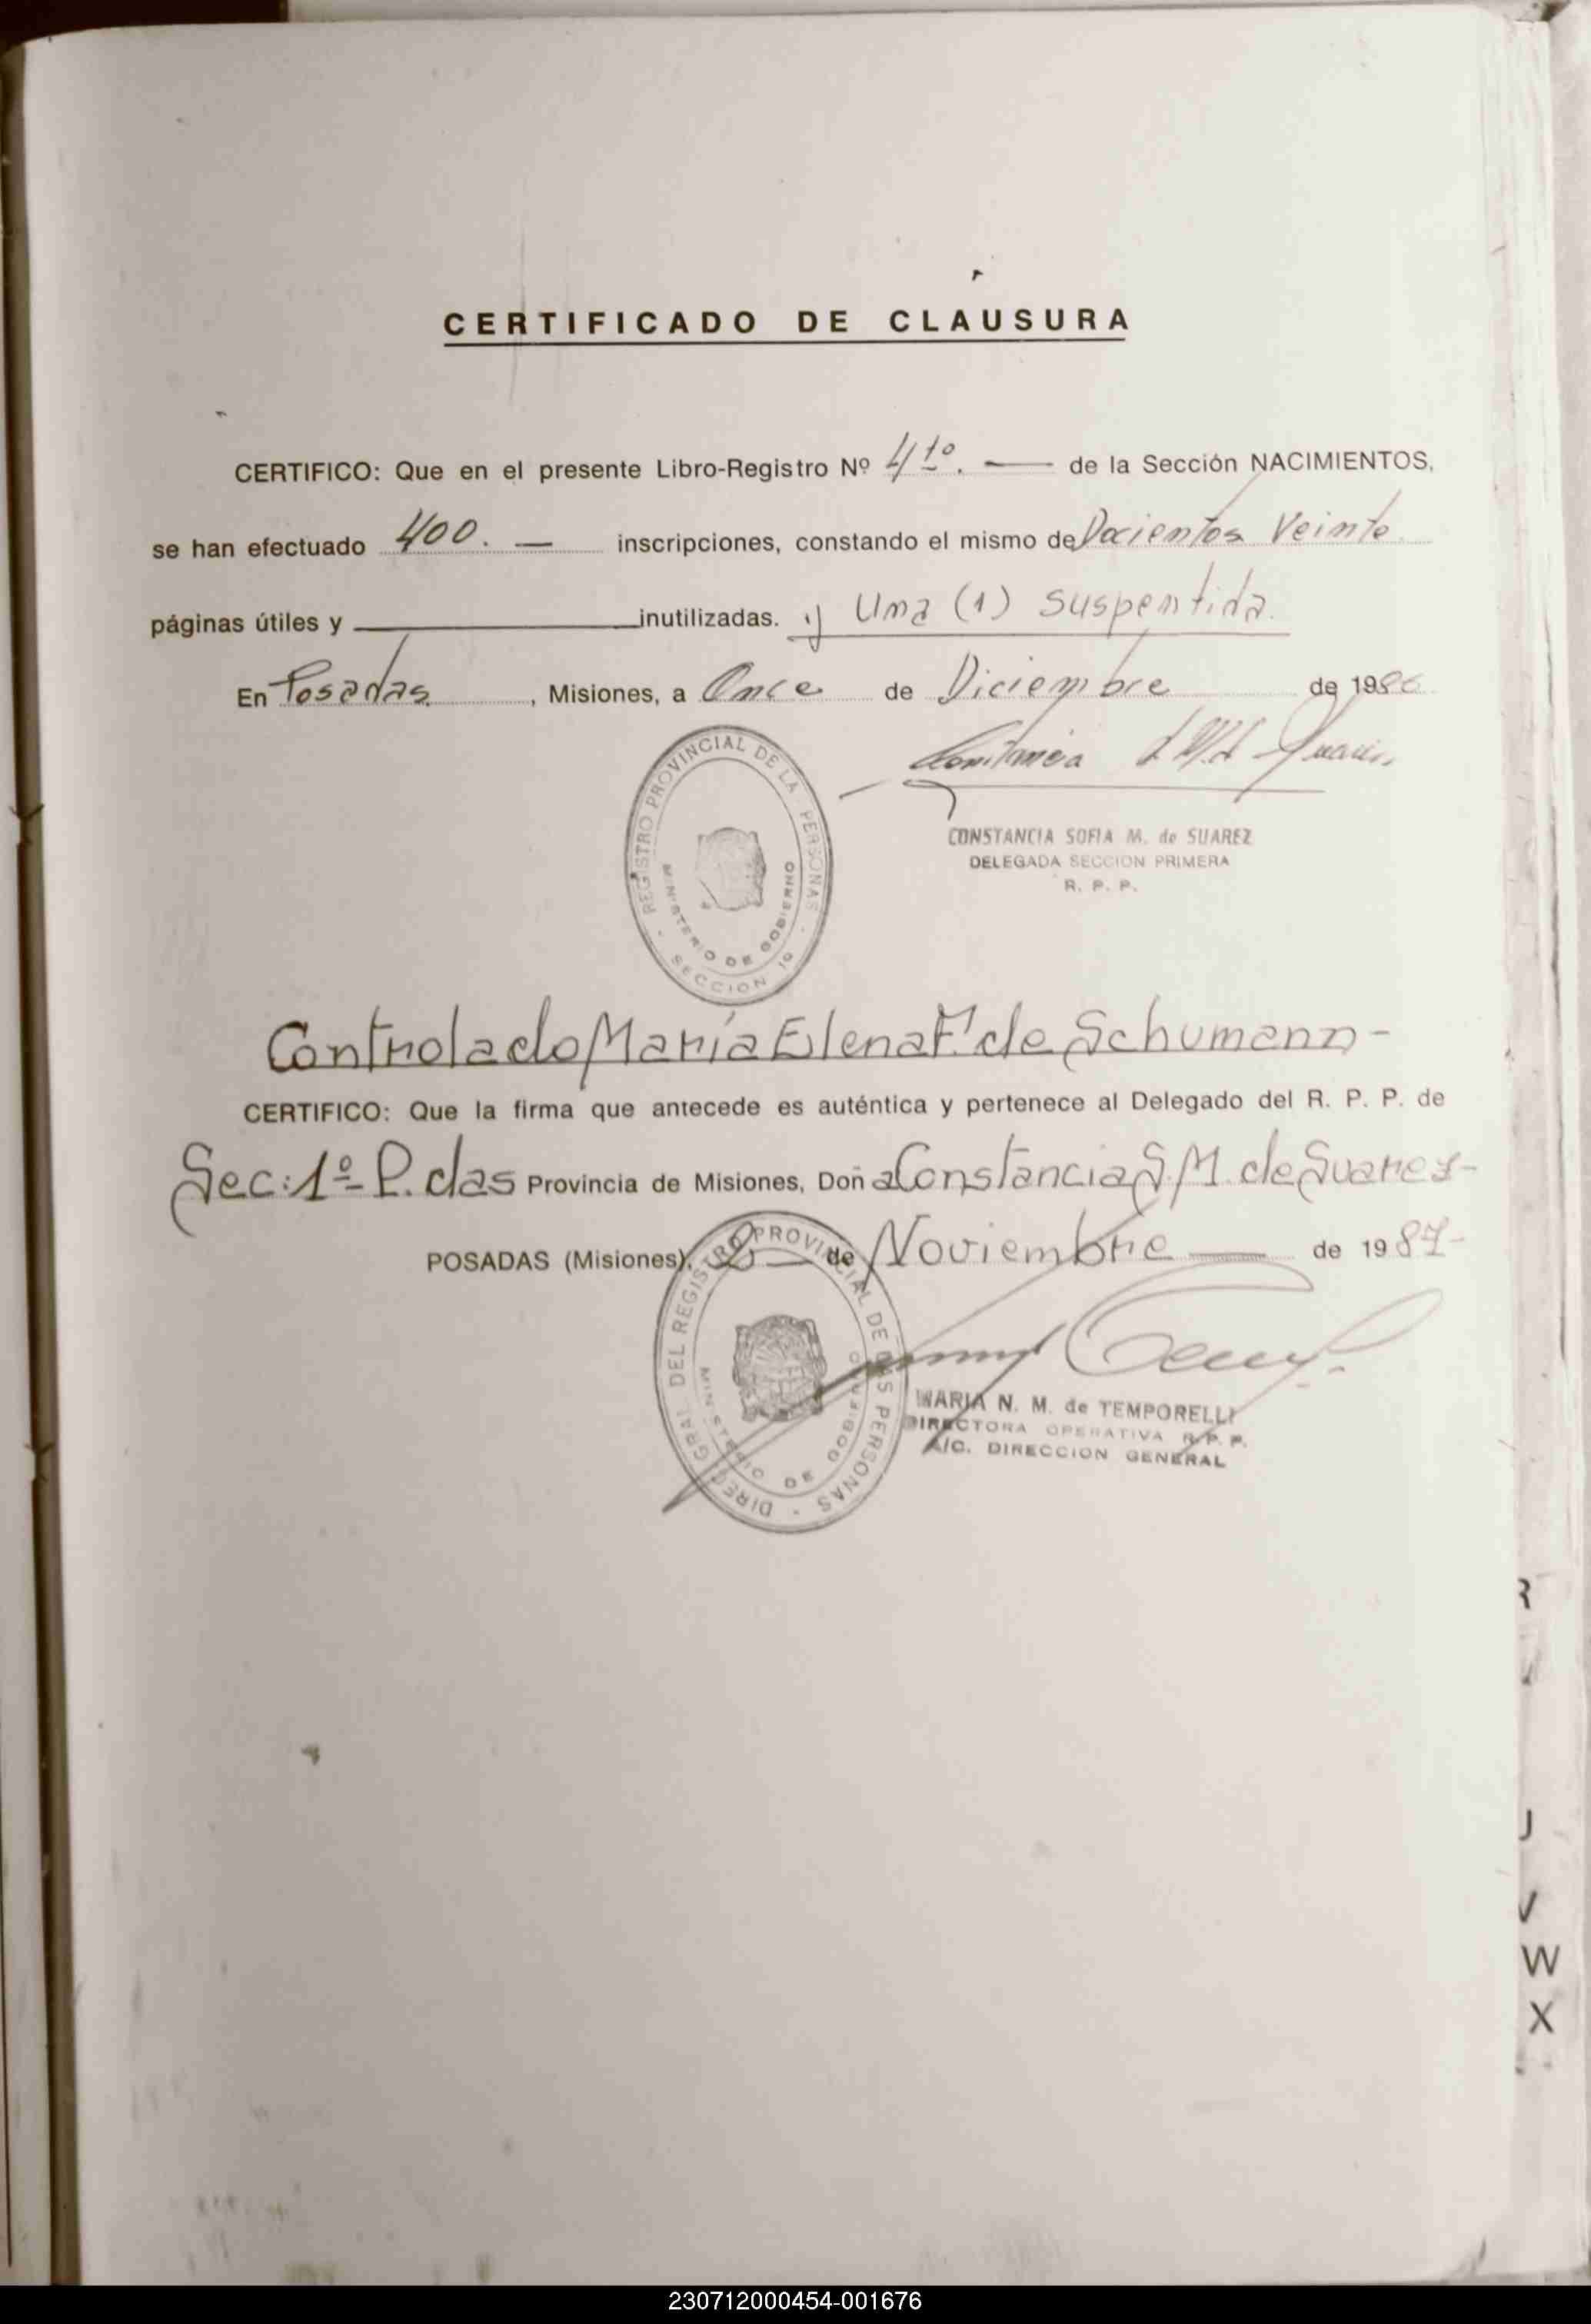 CERTIFICADO DE CLAUSURA
CERTIFICO: Que en el presente Libro-Registro Nº 4 1º. — de la Sección NACIMIENTOS,
se han efectuado 400. — inscripciones, constando el mismo de Docientos Veinte
páginas útiles y ——— inutilizadas. y Una (1) suspentida.
En Posadas. , Misiones, a Once de Diciembre de 1986
CONSTANCIA SOFIA M. de SUAREZ
DELEGADA SECCION PRIMERA
R. P. P.
REGISTRO PROVINCIAL DE LA PERSONAS
MINISTERIO DE GOBIERNO
SECCION 1º
Controlado Maria Elena F. de Schumann-
CERTIFICO: Que la firma que antecede es auténtica y pertenece al Delegado del R. P. P. de
Sec: 1º P. das Provincia de Misiones, Doña Constancia S. M. de Suarez-
POSADAS (Misiones), de Noviembre — de 1987-
DIREC. GRAL DEL REGISTRO PROVINCIAL DE LAS PERSONAS
MINISTERIO DE GOBIERNO
MARIA N. M. de TEMPORELLI
DIRECTORA OPERATIVA R. P. P.
A/C. DIRECCION GENERAL
R
J
V
W
X
230712000454-001676